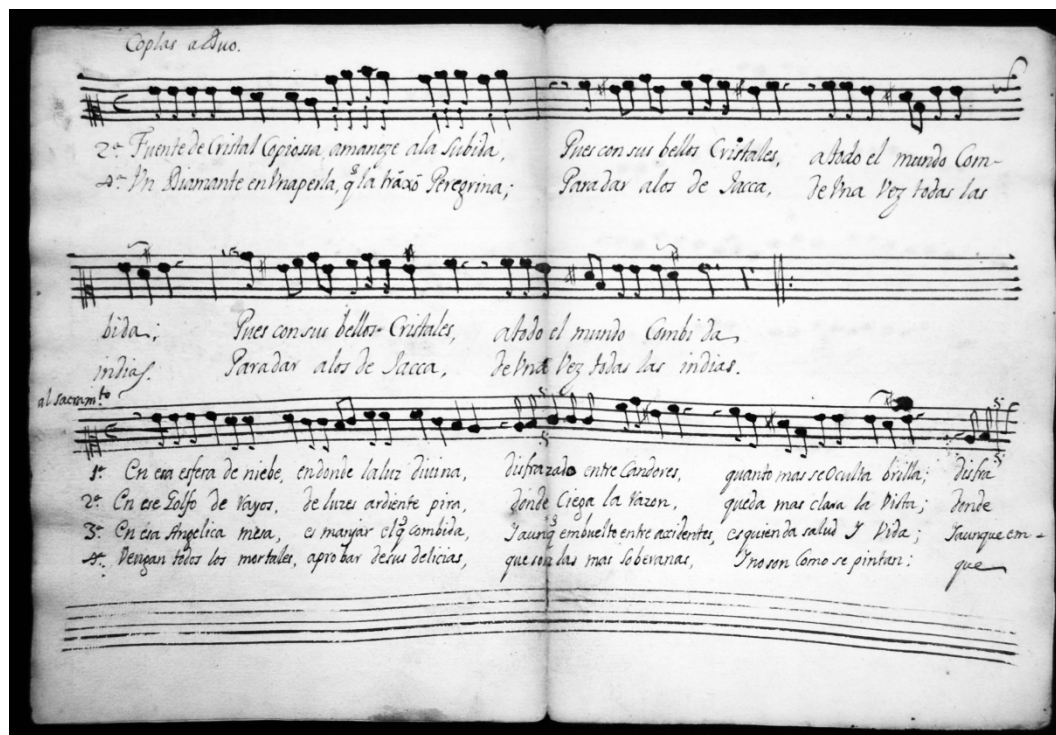 Coplas a Duo.
2ª Fuente de Cristal Copiossa, amaneze ala Subida, Pues con sus bellos Cristales, atodo el mundo Com-
4ª Vn Diamante en Vna perla, q̃ la trãxo Peregrina; Para dar alos de Jacca, de Vna Vez todas las
bida; Pues con sus bellos Cristales, atodo el mundo Combida
indias. Para dar alos de Jacca, de Vna Vez todas las indias.
al sacramto
1ª En esa esfera de niebe, en donde la luz diuina, disfrazado entre Candores, quanto mas se Oculta brilla; disfra
2ª En ese Golfo de Rayos, de luzes ardiente pira, donde Ciega la Razon, queda mas clara la Vista; donde
3ª En esa Angelica mesa, es manjar el q̃ combida, Jaunq̃ embuelto entre accidentes, esquien da salud J Vida; Jaunque em-
4ª Vengan todos los mortales, aprobar desus delicias, que son las mas Soberanas, J no son Como se pintan; que